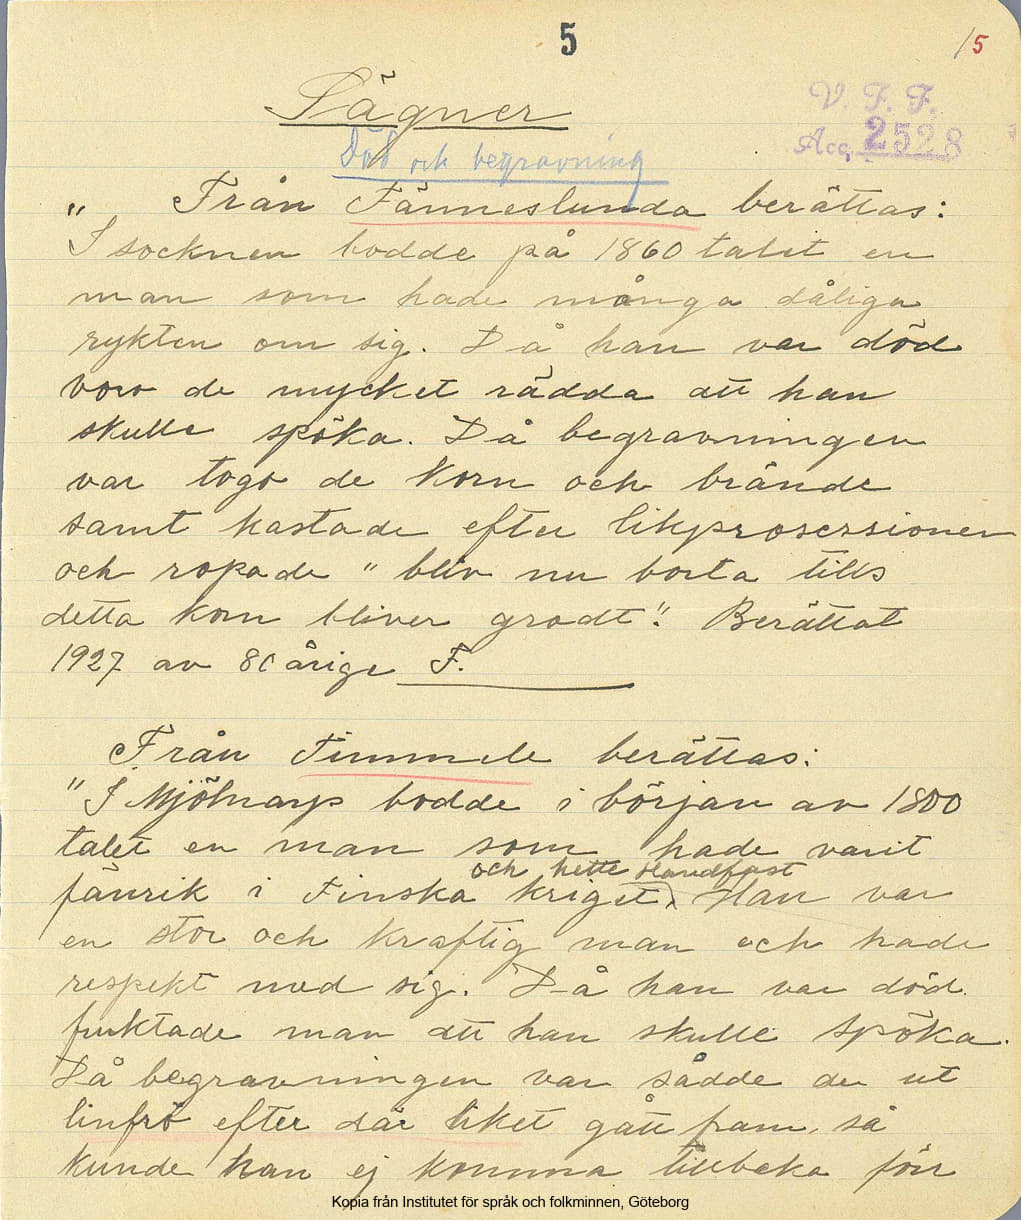 5
15
Sägner
V. F. F.
Acc. 2528
Död och begravning
" Från Fänneslunda berättas:
I socknen bodde på 1860 talet en
man som hade många dåliga
rykten om sig. Då han var död
voro de mycket rädda att han
skulle spöka. Då begravningen
var togo de korn och brände
samt kastade efter likprosessionen
och ropade "bliv nu borta tills
detta korn bliver grodt". Berättat
1927 av 80 årige F.
Från Timmele berättas:
"I Mjölnarp bodde i början av 1800
talet en man som hade varit
och hette Handfast
fänrik i Finska kriget. Han var
en stor och kraftig man och hade
respekt med sig. Då han var död
fruktade man att han skulle spöka.
Då begravningen var sådde de ut
linfrö efter där liket gått fram, så
kunde han ej komma tillbaka förr
Kopia från Institutet för språk och folkminnen, Göteborg